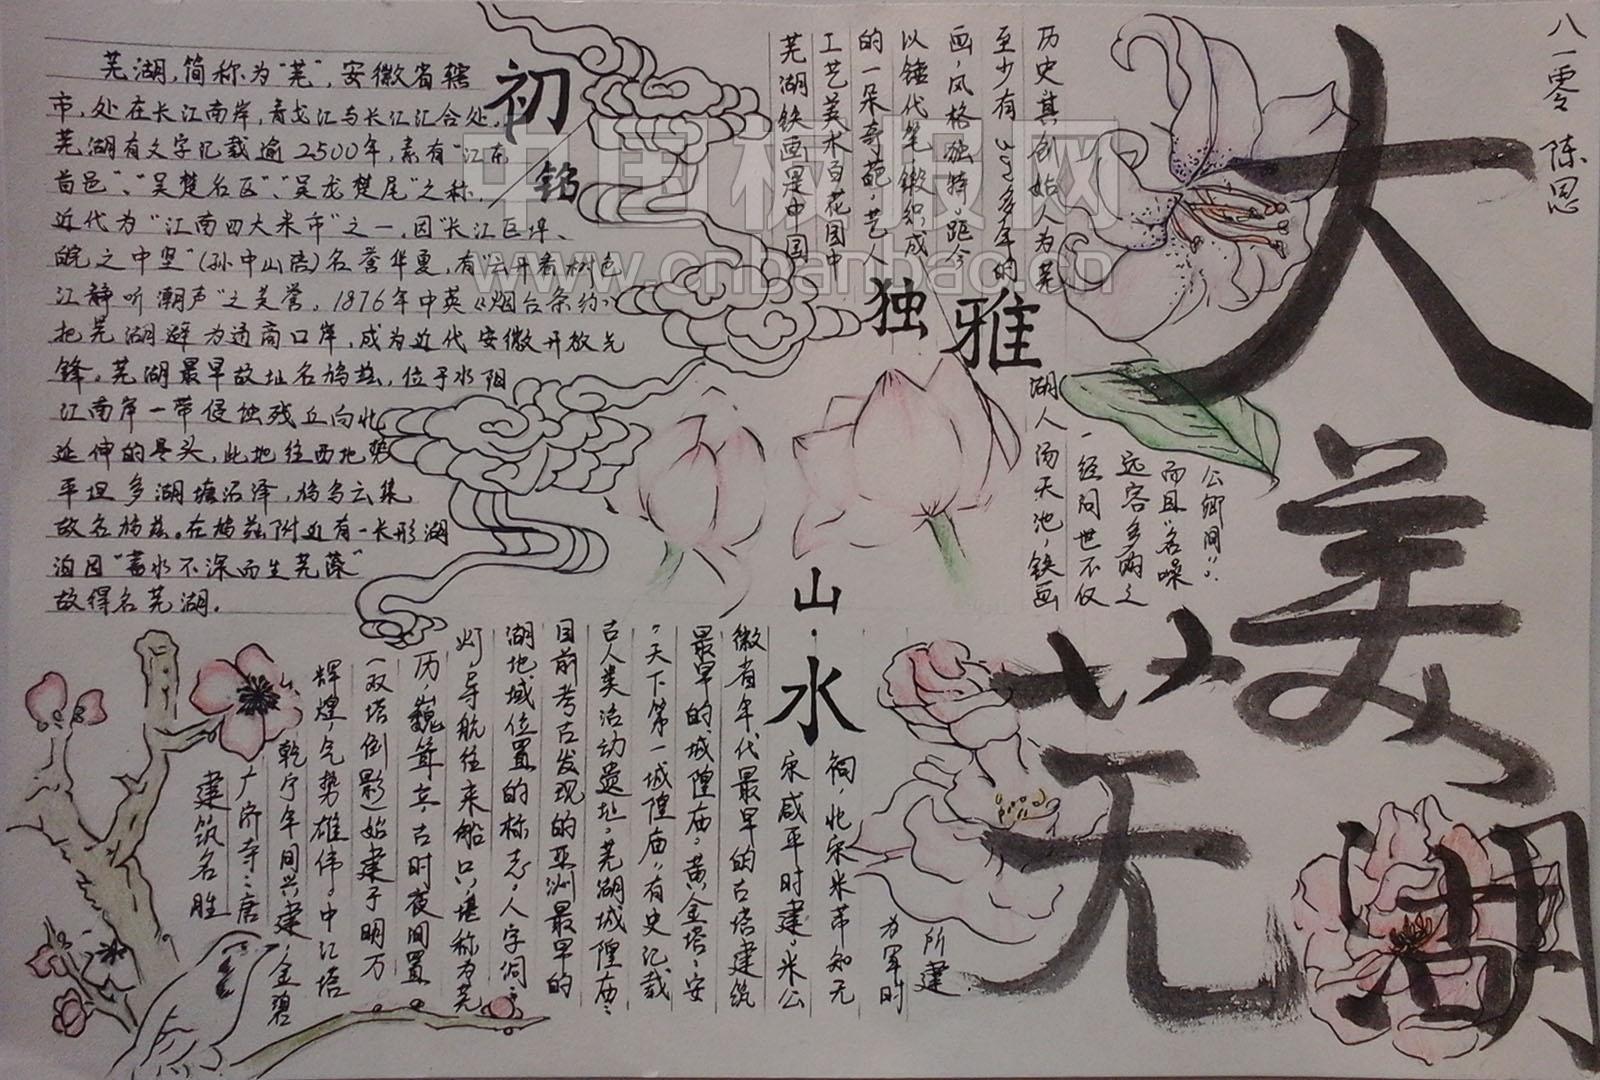 大美芜湖
八一零 陈思
初
铭
芜湖，简称为“芜”，安徽省辖
市，处在长江南岸，青戈江与长江汇合处，
芜湖有文字记载逾2500年，素有“江东
首邑”、“吴楚名区”、“吴龙楚尾”之称，
近代为“江南四大米市”之一，因“长江巨埠、
皖之中坚”（孙中山语）名誉华夏，有“云开看树色
江静听潮声”之美誉。1876年中英《烟台条约》
把芜湖辟为通商口岸，成为近代安徽开放先
锋。芜湖最早故址名鸠兹，位于水阳
江南岸一带侵蚀残丘向北
延伸的尽头，此地往西地势
平坦多湖塘沼泽，鸠鸟云集
故名鸠兹。在鸠兹附近有一长形湖
泊因“蓄水不深而生芜藻”
故得名芜湖。
独
雅
芜湖铁画是中国
工艺美术百花园中
的一朵奇葩，艺人
以锤代笔，锻织成
画，风格独特，距今
至少有333多年的
历史其创始人为芜
湖人汤天池，铁画
一经问世不仅
远客多购之
而且“名噪
公卿间”。
山·水
建筑名胜
广济寺：唐
乾宁年间兴建，金碧
辉煌，气势雄伟。中江塔
（双塔倒影）始建于明万
历，巍耸立，古时夜间置
灯，导航往来船只，堪称为芜
湖地域位置的标志，人字洞：
目前考古发现的亚洲最早的
古人类活动遗址。芜湖城隍庙：
“天下第一城隍庙，有史记载
最早的城隍庙。黄金塔：安
徽省年代最早的古塔建筑
宋咸平时建，米公
祠，北宋米芾知无
为军时
所建
中国板报网
www.cnbanbao.cn